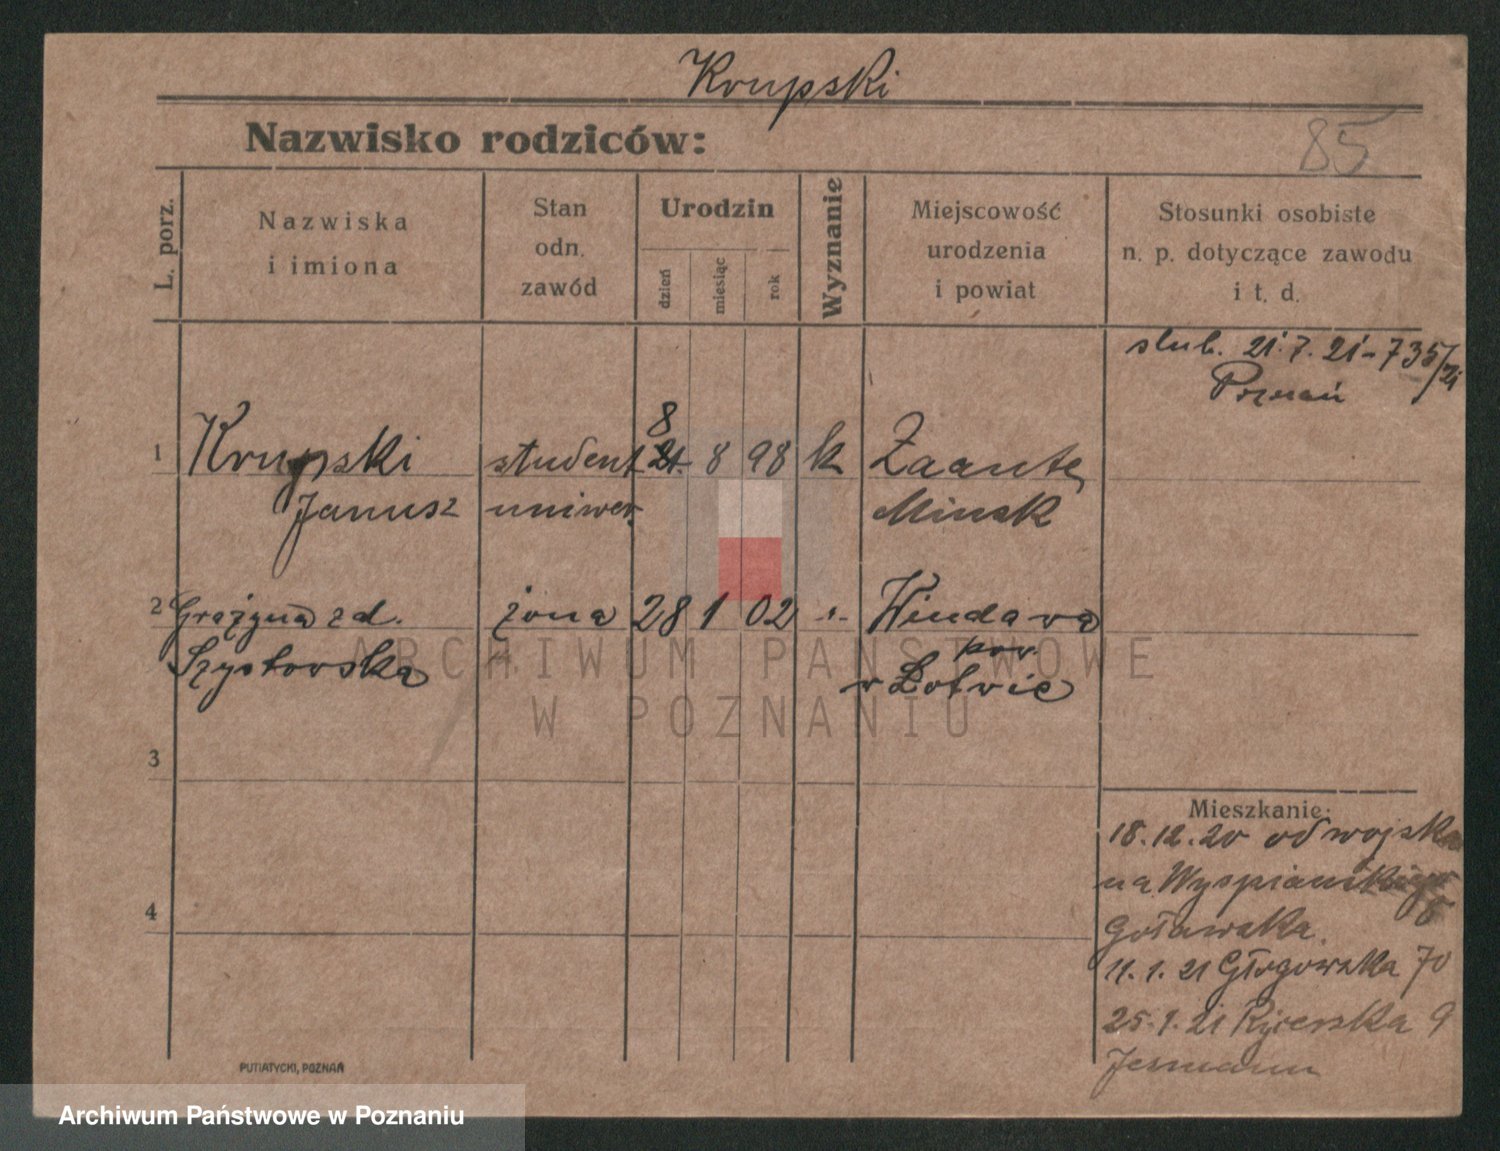 Krupski
Nazwisko rodziców:
85
L. porz.
Nazwiska
i imiona
Stan
odn.
zawód
Urodzin
dzień
miesiąc
rok
Wyznanie
Miejscowość
urodzenia
i powiat
Stosunki osobiste
n. p. dotyczące zawodu
i t. d.
slub. 21.7.21-735/21
Poznań
8
1 Krupski student 21. 8 98 k
Janusz uniwer. Minsk
2 Grażyna z d. żona 28 1 02 Windawa
pow.
w Łotwie
ARCHIWUM PAŃSTWOWE
W POZNANIU
3
Mieszkanie:
18.12.20 od wojska
na
4
11.1.21 Głogowska 70
25.1.21 9
PUTIATYCKI, POZNAŃ
Archiwum Państwowe w Poznaniu